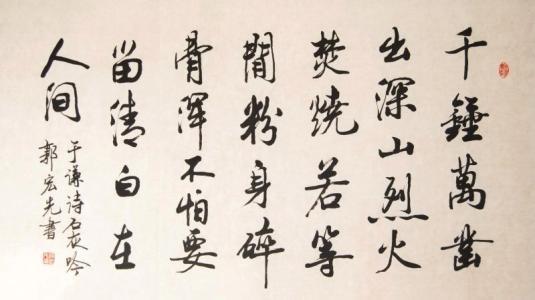 千錘萬凿
出深山烈火
焚燒若等
閒粉身碎
骨渾不怕要
留清白在
人间
于谦诗石灰吟
郭宏先書